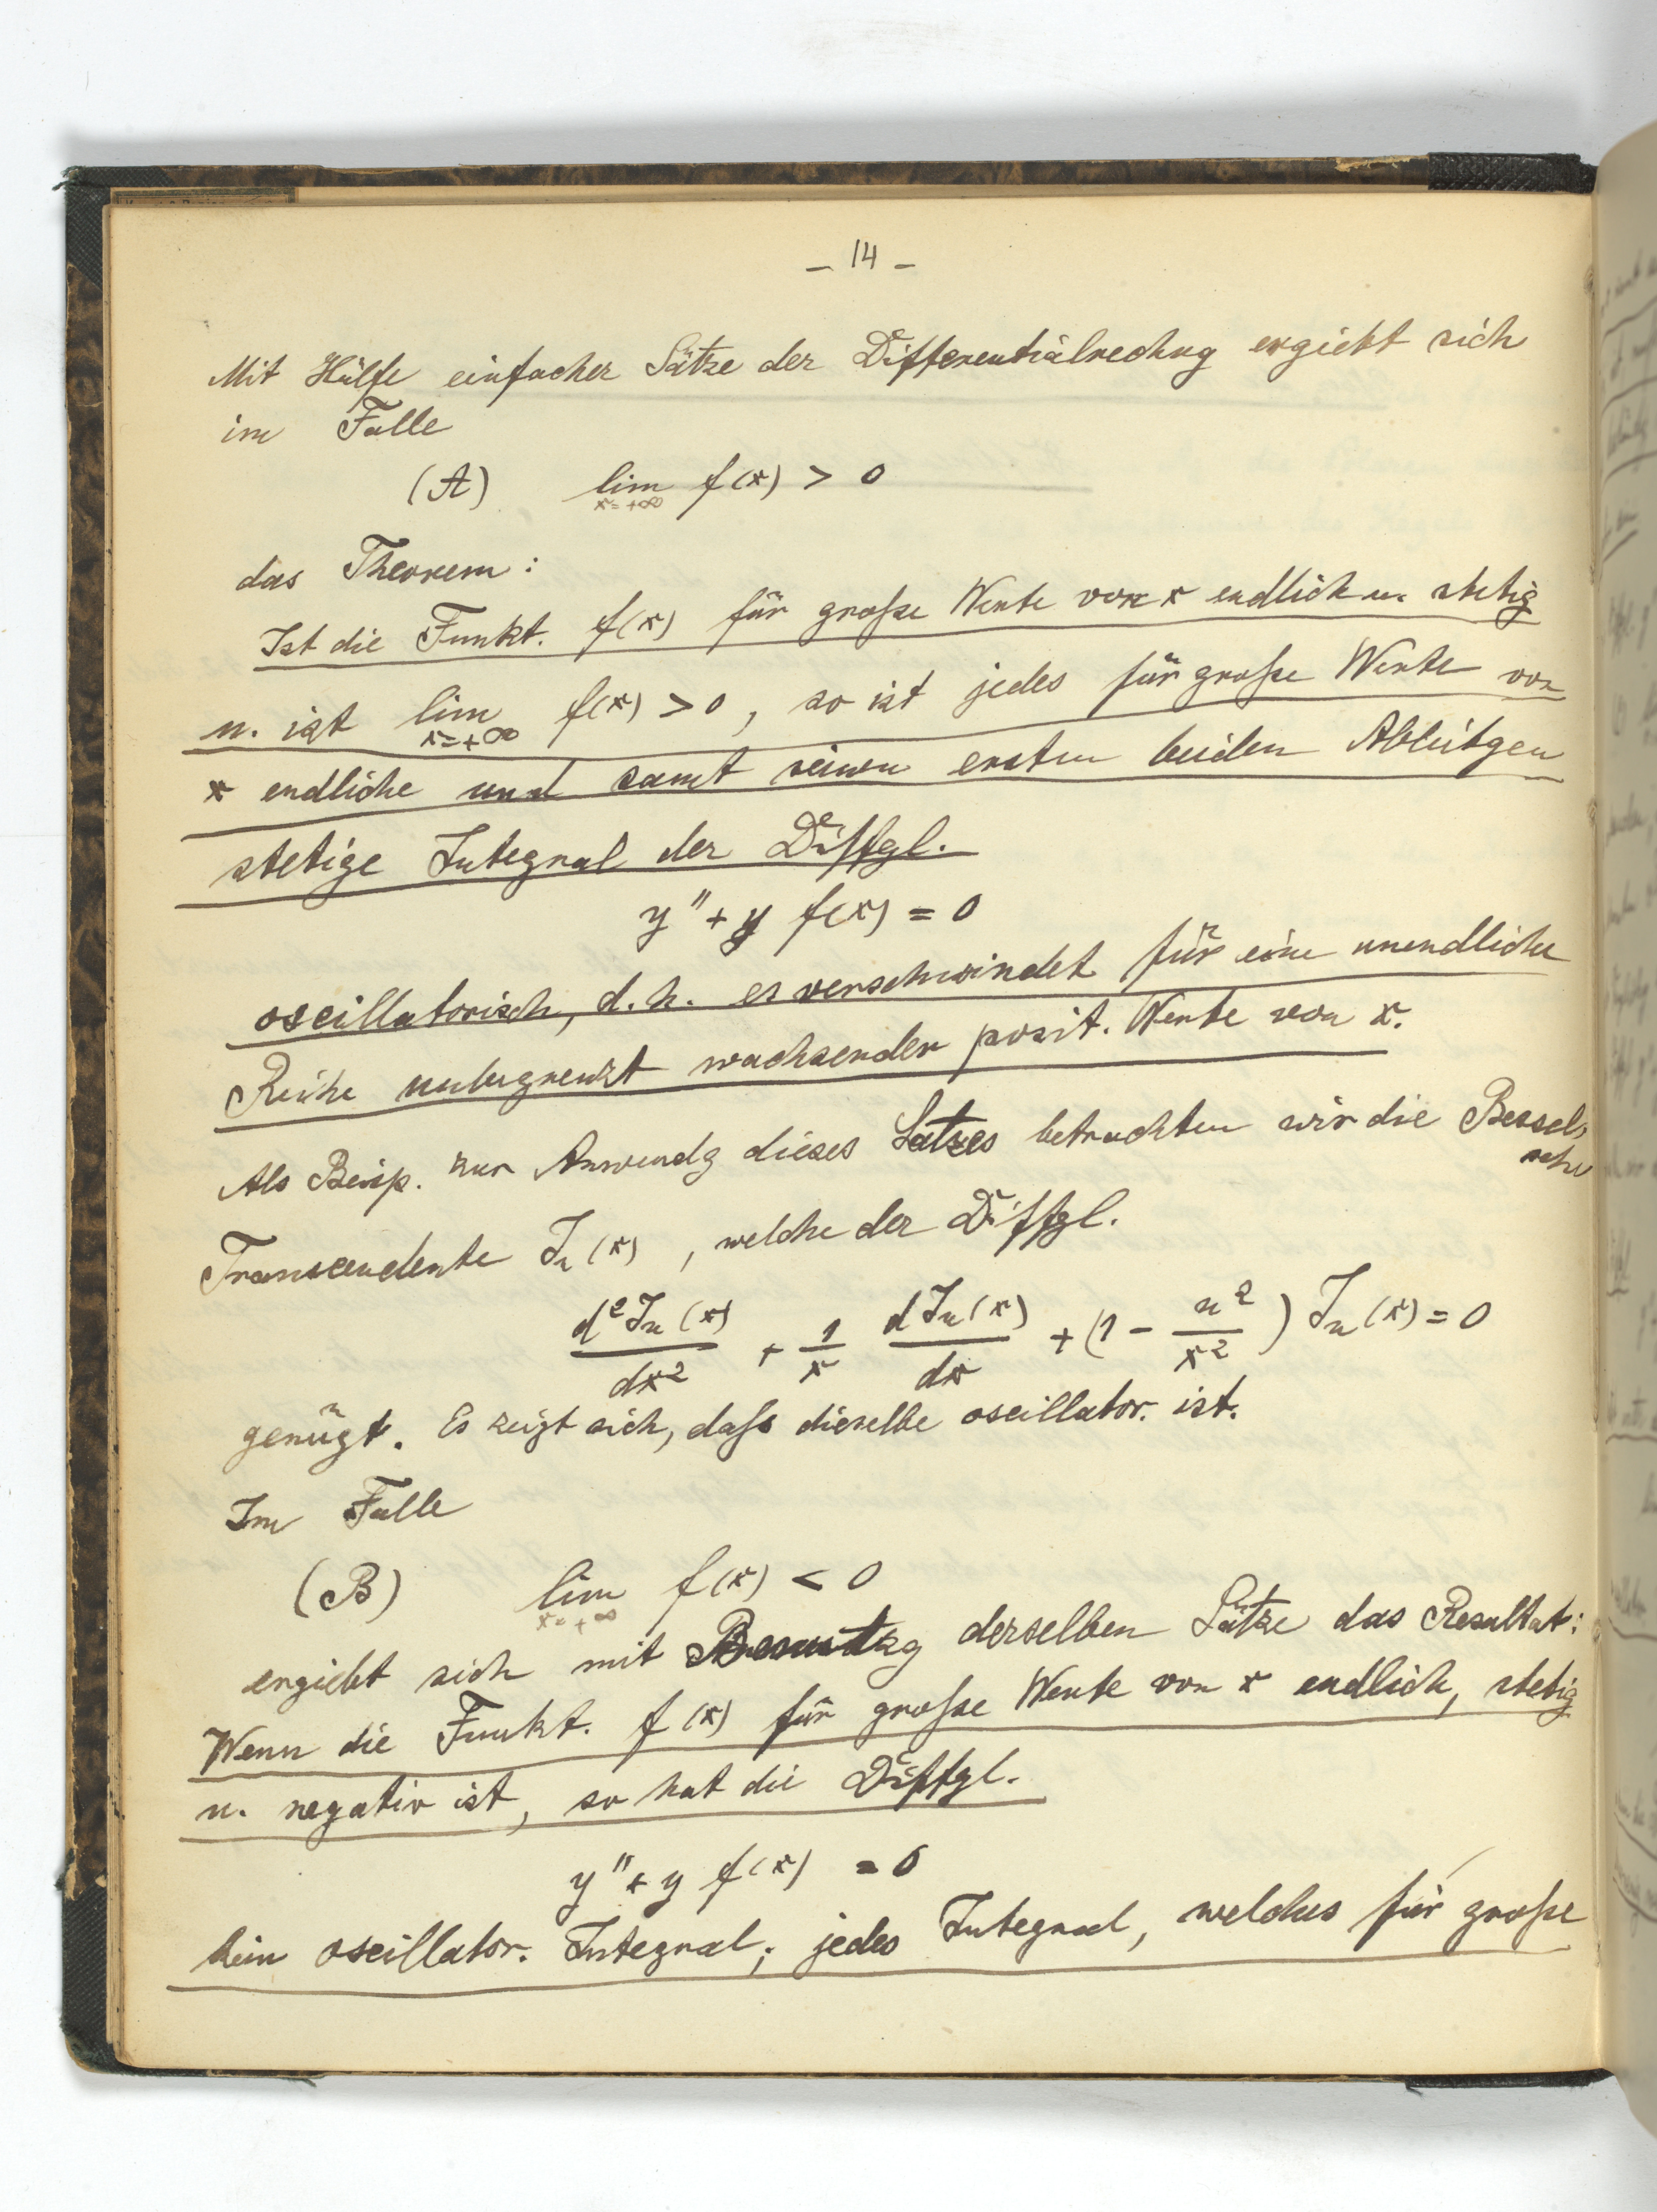 – 14 –
Mit Hülfe einfacher Sätze der Differentialrechng ergiebt sich
im Falle
(A) lim f(x) > 0
x=+∞
das Theorem:
Ist die Funkt. f(x) für große Werte von x endlich u. stetig
u. ist lim f(x) > 0, so ist jedes für große Werte von
x=+∞
x endliche und samt seinen ersten beiden Ableitgen
stetige Integral der Diffgl.
y'' + y f(x) = 0
oscillatorisch, d.h. es verschwindet für eine unendliche
Reihe unbegrenzt wachsender posit. Werte von x.
Als Beisp. zur Anwendg dieses Satzes betrachten wir die Bessel
sche
Transcendente Jn(x), welche der Diffgl.
d²Jn(x)/dx² + 1/x dJn(x)/dx + (1 – n²/x²) Jn(x) = 0
genügt. Es zeigt sich, daß dieselbe oscillator. ist.
Im Falle
(B) lim f(x) < 0
x=+∞
ergiebt sich mit Benutzg derselben Sätze das Resultat:
Wenn die Funkt. f(x) für große Werte von x endlich, stetig
u. negativ ist, so hat die Diffgl.
y'' + y f(x) = 0
kein oscillator. Integral; jedes Integral, welches für große